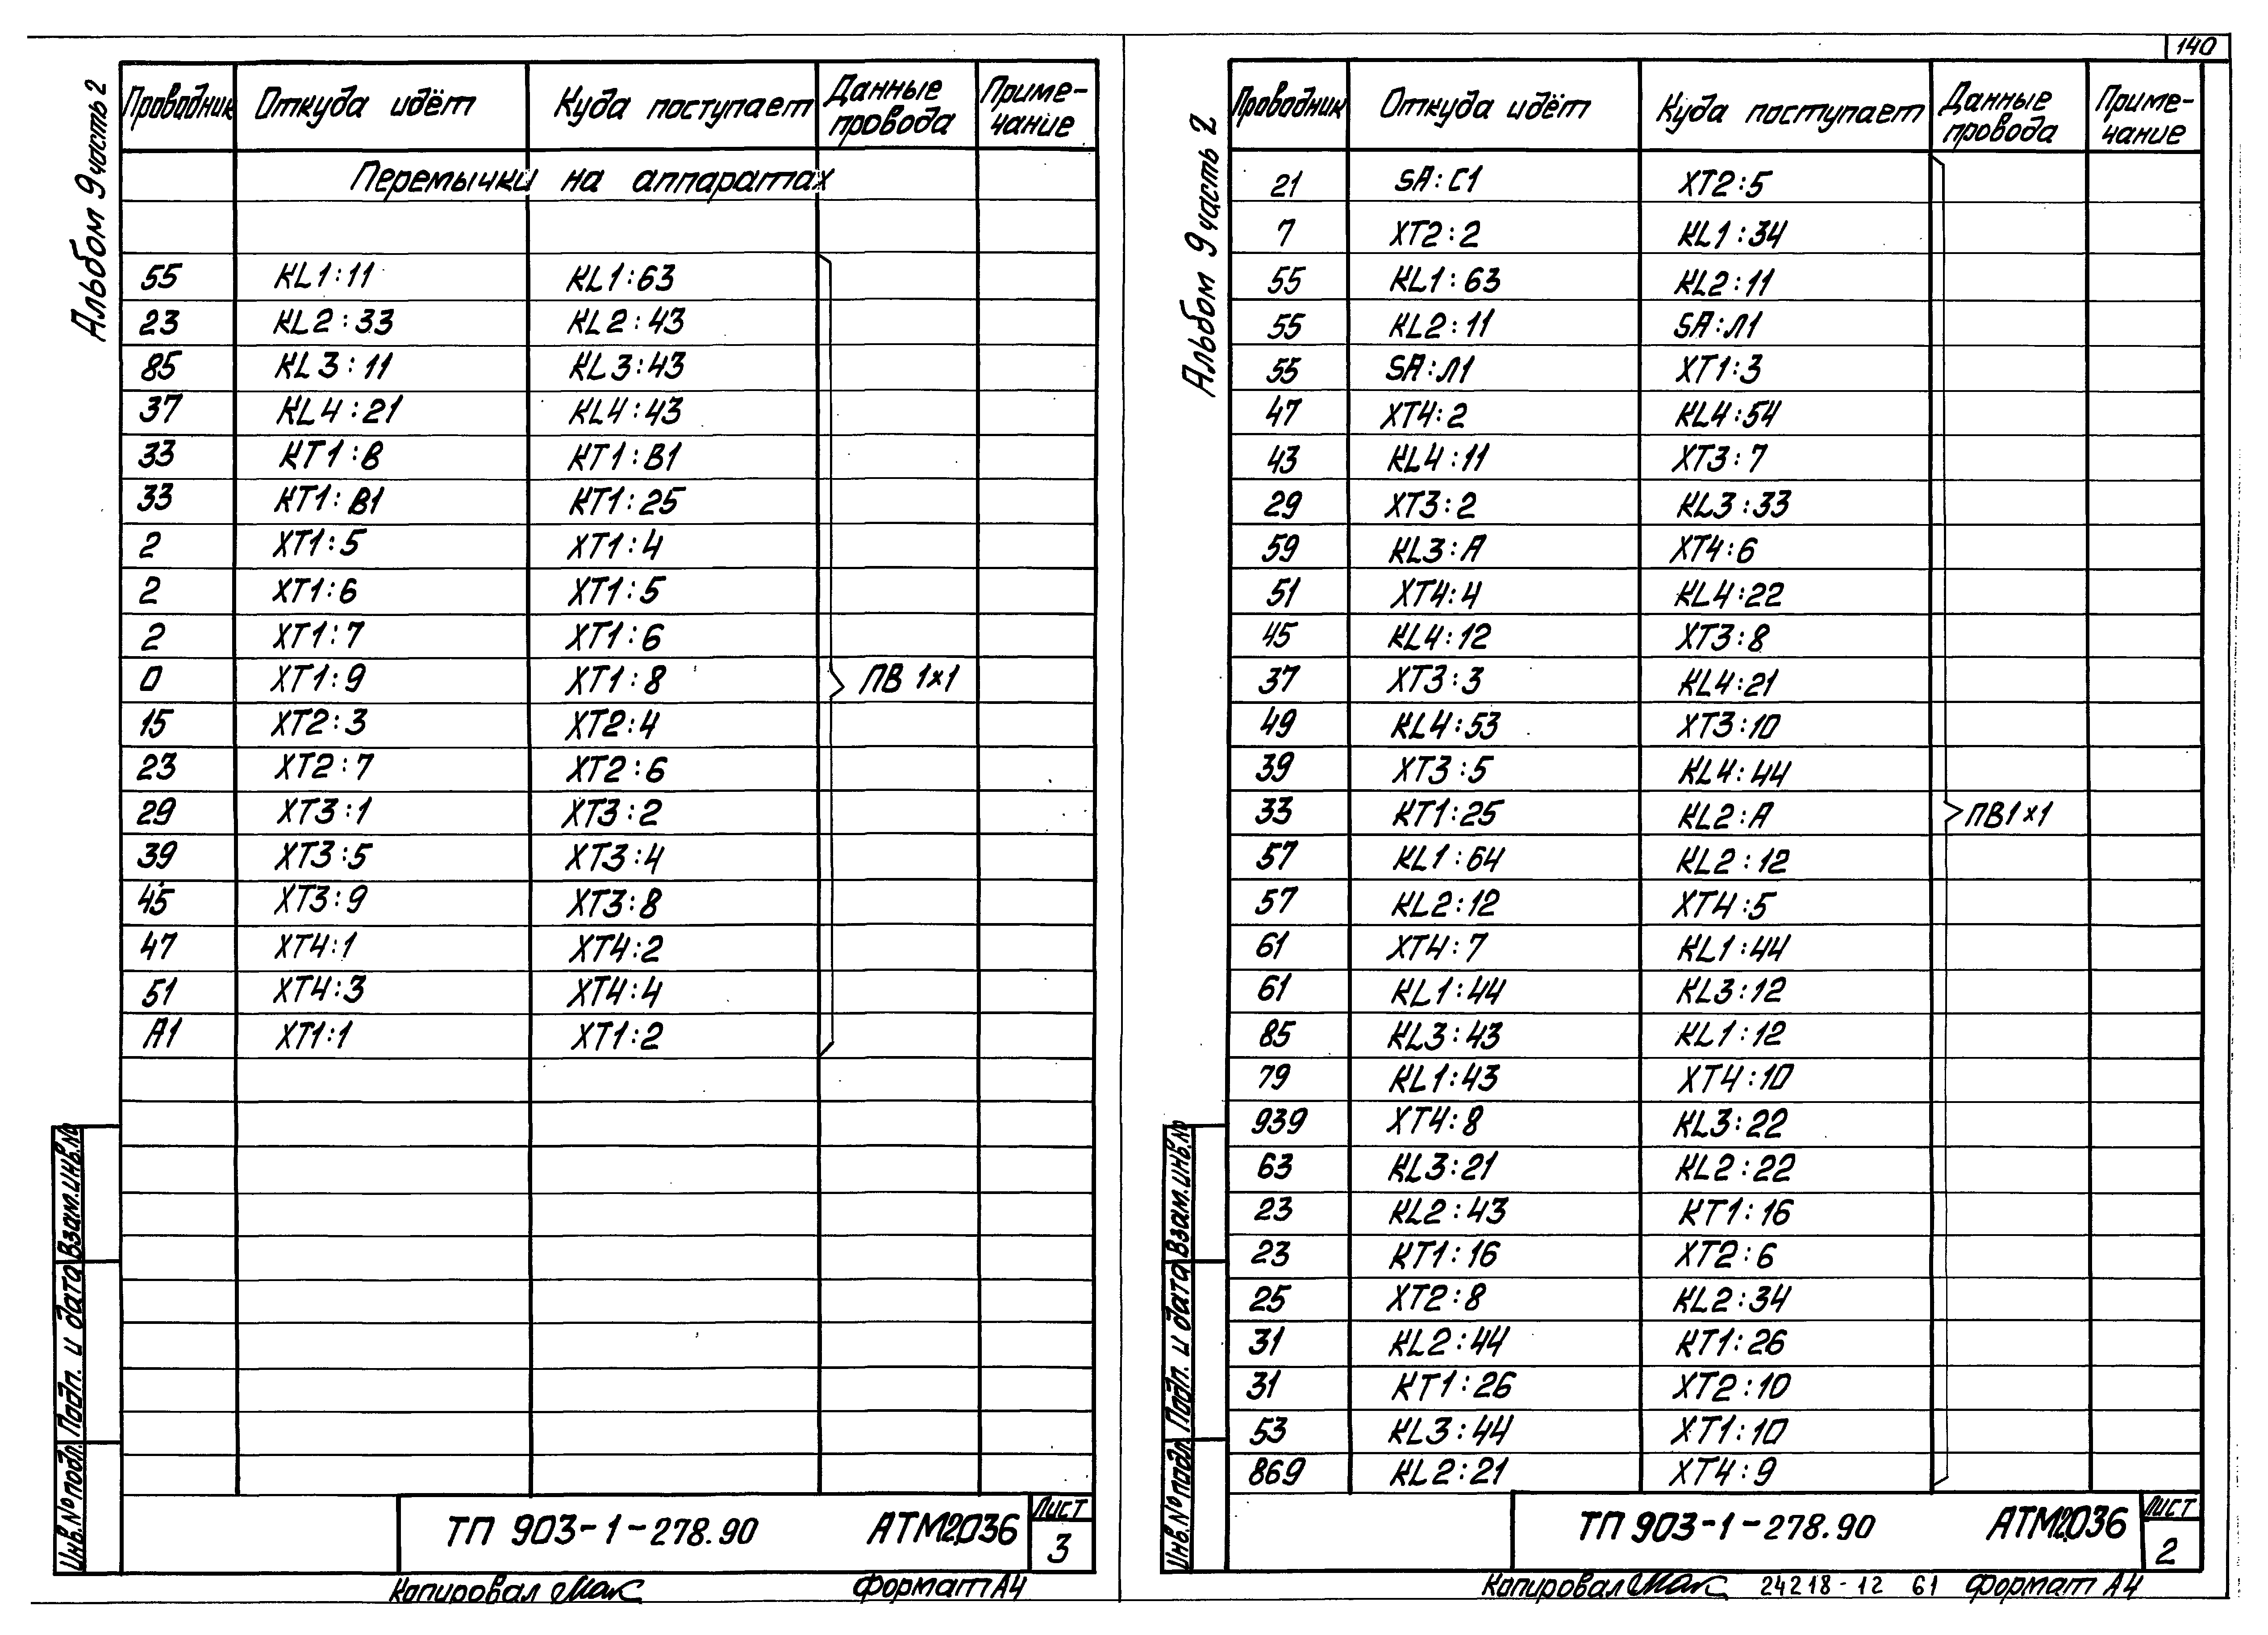 140
Альбом 9 часть 2
Проводник Откуда идёт Куда поступает Данные провода Приме-чание
Перемычки на аппаратах
55 KL1:11 KL1:63
23 KL2:33 KL2:43
85 KL3:11 KL3:43
37 KL4:21 KL4:43
33 KT1:В KT1:В1
33 KT1:В1 KT1:25
2 XT1:5 XT1:4
2 XT1:6 XT1:5
2 XT1:7 XT1:6
0 XT1:9 XT1:8 ПВ 1×1
15 XT2:3 XT2:4
23 XT2:7 XT2:6
29 XT3:1 XT3:2
39 XT3:5 XT3:4
45 XT3:9 XT3:8
47 XT4:1 XT4:2
51 XT4:3 XT4:4
А1 XT1:1 XT1:2
Инв.№ подл. Подп. и дата Взам.инв.№
ТП 903-1-278.90 АТМ2.036 Лист 3
Копировал Формат А4
Альбом 9 часть 2
Проводник Откуда идёт Куда поступает Данные провода Приме-чание
21 SA:С1 XT2:5
7 XT2:2 KL1:34
55 KL1:63 KL2:11
55 KL2:11 SA:Л1
55 SA:Л1 XT1:3
47 XT4:2 KL4:54
43 KL4:11 XT3:7
29 XT3:2 KL3:33
59 KL3:А XT4:6
51 XT4:4 KL4:22
45 KL4:12 XT3:8
37 XT3:3 KL4:21
49 KL4:53 XT3:10
39 XT3:5 KL4:44
33 KT1:25 KL2:А ПВ1×1
57 KL1:64 KL2:12
57 KL2:12 XT4:5
61 XT4:7 KL1:44
61 KL1:44 KL3:12
85 KL3:43 KL1:12
79 KL1:43 XT4:10
939 XT4:8 KL3:22
63 KL3:21 KL2:22
23 KL2:43 KT1:16
23 KT1:16 XT2:6
25 XT2:8 KL2:34
31 KL2:44 KT1:26
31 KT1:26 XT2:10
53 KL3:44 XT1:10
869 KL2:21 XT4:9
Инв.№ подл. Подп. и дата Взам.инв.№
ТП 903-1-278.90 АТМ2.036 Лист 2
Копировал 24218-12 61 Формат А4